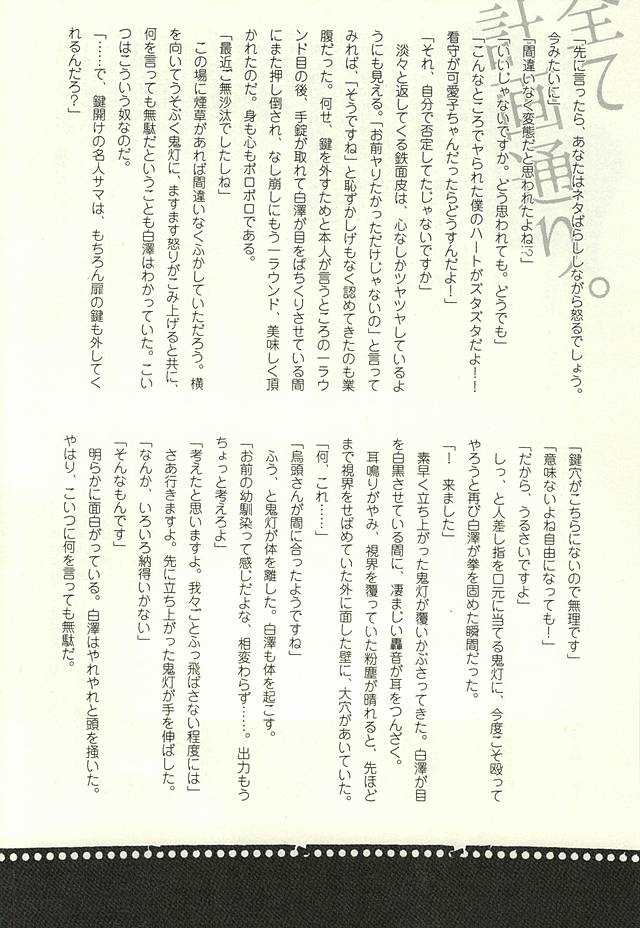 全て
計画通り。
「先に言ったら、あなたはネタばらししながら怒るでしょう。
今みたいに」
「間違いなく変態だと思われたよね!?」
「いいじゃないですか。どう思われても。どうでも」
「こんなところでヤられた僕のハートがズタズタだよ！！
看守が可愛子ちゃんだったらどうすんだよ！」
「それ、自分で否定してたじゃないですか」
　淡々と返してくる鉄面皮は、心なしかツヤツヤしているよ
うにも見える。「お前ヤりたかっただけじゃないの」と言って
みれば、「そうですね」と恥ずかしげもなく認めてきたのも業
腹だった。何せ、鍵を外すためと本人が言うところの一ラウ
ンド目の後、手錠が取れて白澤が目をぱちくりさせている間
にまた押し倒され、なし崩しにもう一ラウンド、美味しく頂
かれたのだ。身も心もボロボロである。
「最近ご無沙汰でしたしね」
　この場に煙草があれば間違いなくふかしていただろう。横
を向いてうそぶく鬼灯に、ますます怒りがこみ上げると共に、
何を言っても無駄だということも白澤はわかっていた。こい
つはこういう奴なのだ。
「……で、鍵開けの名人サマは、もちろん扉の鍵も外してく
れるんだろ？」
「鍵穴がこちらにないので無理です」
「意味ないよね自由になっても！」
「だから、うるさいですよ」
　しっ、と人差し指を口元に当てる鬼灯に、今度こそ殴って
やろうと再び白澤が拳を固めた瞬間だった。
「！　来ました」
　素早く立ち上がった鬼灯が覆いかぶさってきた。白澤が目
を白黒させている間に、凄まじい轟音が耳をつんざく。
　耳鳴りがやみ、視界を覆っていた粉塵が晴れると、先ほど
まで視界をせばめていた外に面した壁に、大穴があいていた。
「何、これ……」
「烏頭さんが間に合ったようですね」
　ふう、と鬼灯が体を離した。白澤も体を起こす。
「お前の幼馴染って感じだよな、相変わらず……。出力もう
ちょっと考えろよ」
「考えたと思いますよ。我々ごとふっ飛ばさない程度には」
　さあ行きますよ。先に立ち上がった鬼灯が手を伸ばした。
「なんか、いろいろ納得いかない」
「そんなもんです」
　明らかに面白がっている。白澤はやれやれと頭を掻いた。
やはり、こいつに何を言っても無駄だ。